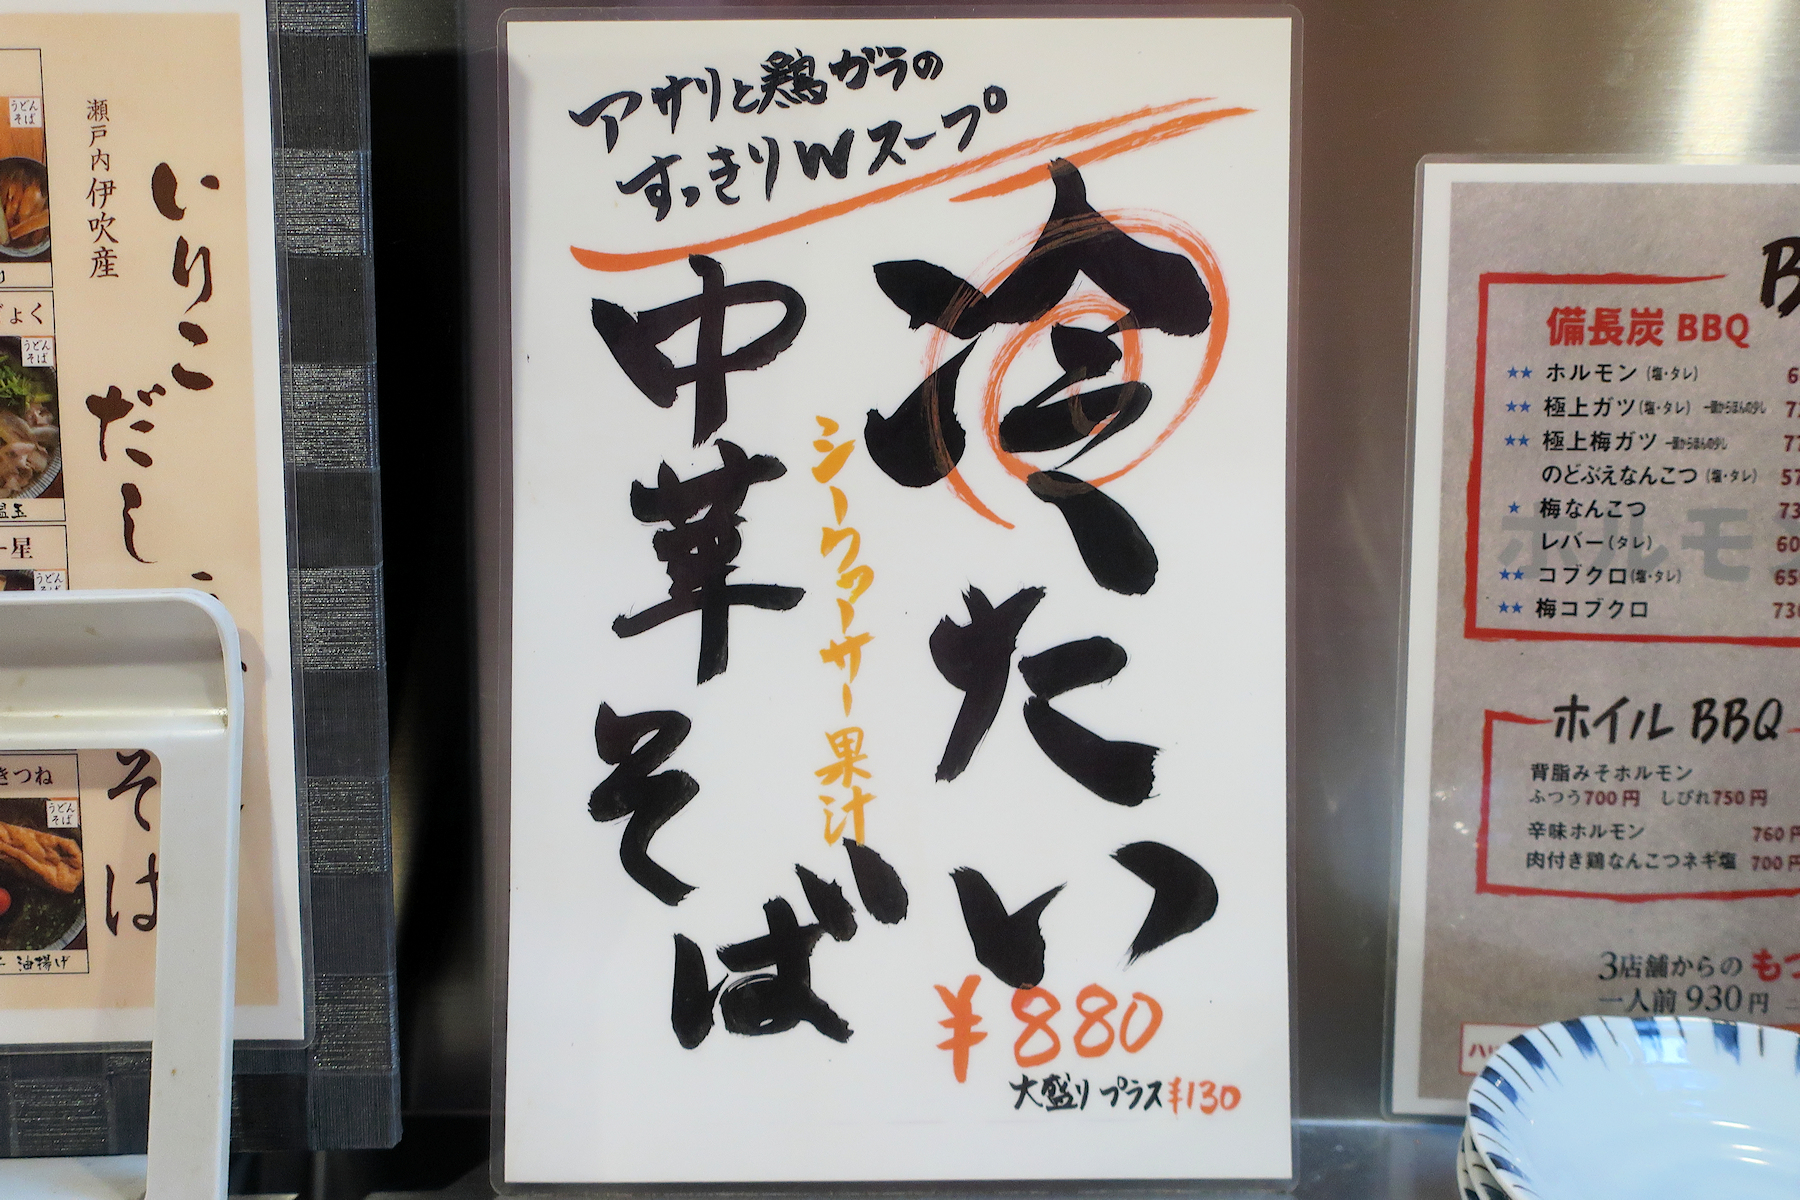 アサリと鶏ガラの
すっきりWスープ
冷たい
中華そば
シークァーサー果汁
¥880
大盛り プラス¥130
瀬戸内伊吹産
いりこ
だし
そば
うどん
そば
うどん
そば
一星
きつね
うどん
そば
油揚げ
備長炭 BBQ
★★ ホルモン (塩・タレ)
★★ 極上ガツ (塩・タレ) 一頭からほんの少し
★★ 極上梅ガツ 一頭からほんの少し
のどぶえなんこつ (塩・タレ)
★ 梅なんこつ
レバー (タレ)
★★ コブクロ (塩・タレ)
★★ 梅コブクロ
ホルモ
ホイル BBQ
背脂みそホルモン
ふつう700円 しびれ750円
辛味ホルモン 760円
肉付き鶏なんこつネギ塩 700円
3店舗からの
一人前 930円